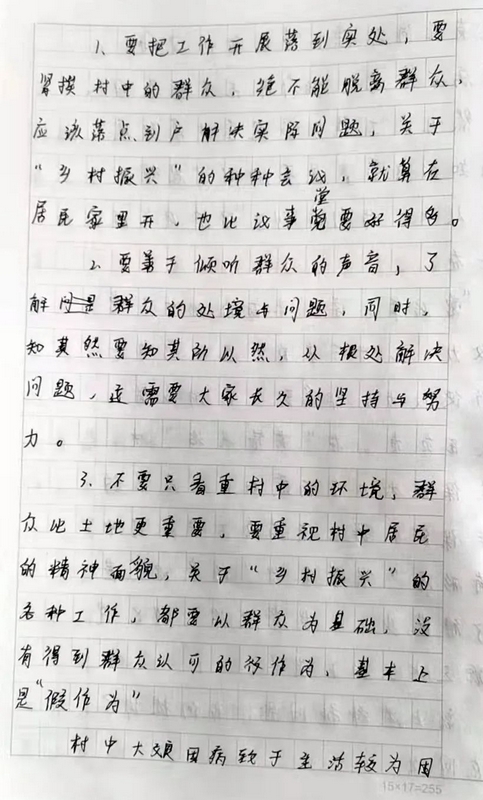 1、要把工作开展落到实处，要
紧摸村中的群众，绝不能脱离群众，
应该落点到户解决实际问题，关于
“乡村振兴”的种种会议，就算在
居民家里开，也比议事堂要好得多。
2、要善于倾听群众的声音，了
解群众的处境与问题，同时，
知其然要知其所以然，从根处解决
问题，这需要大家长久的坚持与努
力。
3、不要只看重村中的环境，群
众比土地更重要，要重视村中居民
的精神面貌，关于“乡村振兴”的
各种工作，都要以群众为基础，没
有得到群众认可的行作为，基本上
是“假作为”
村中大娘因病致于生活较为困
15×17=255